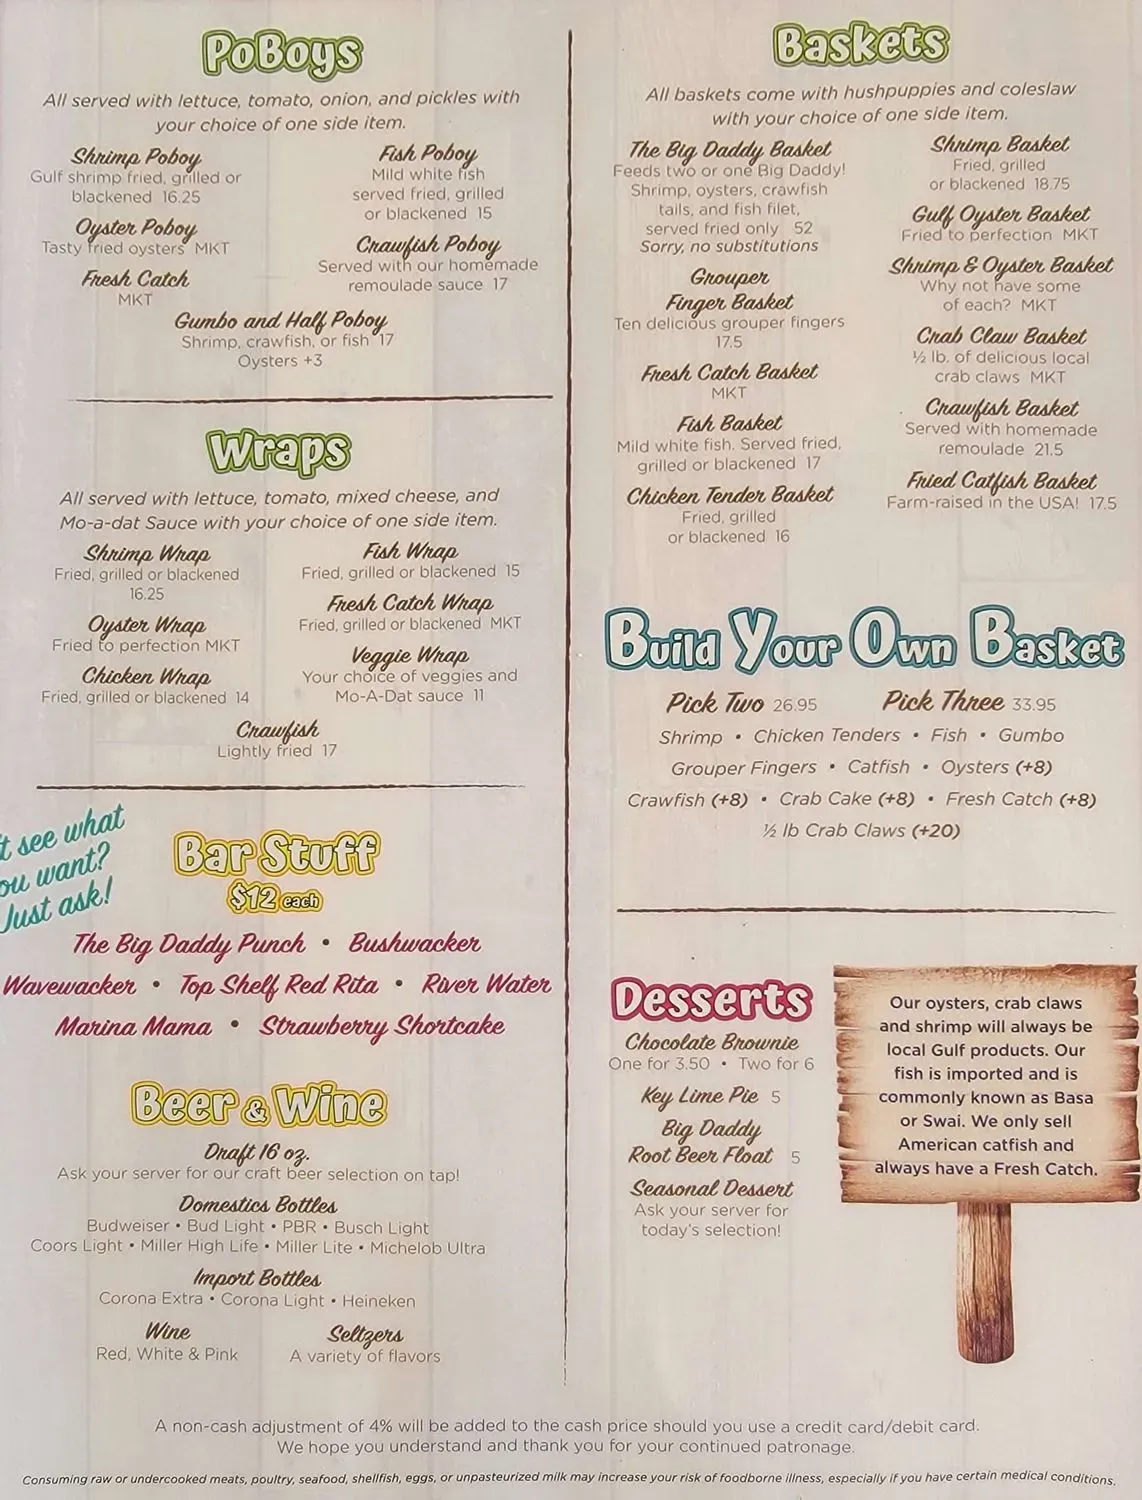 PoBoys
All served with lettuce, tomato, onion, and pickles with
your choice of one side item.
Shrimp Poboy
Gulf shrimp fried, grilled or
blackened 16.25
Oyster Poboy
Tasty fried oysters MKT
Fresh Catch
MKT
Fish Poboy
Mild white fish
served fried, grilled
or blackened 15
Crawfish Poboy
Served with our homemade
remoulade sauce 17
Gumbo and Half Poboy
Shrimp, crawfish, or fish 17
Oysters +3
Wraps
All served with lettuce, tomato, mixed cheese, and
Mo-a-dat Sauce with your choice of one side item.
Shrimp Wrap
Fried, grilled or blackened
16.25
Oyster Wrap
Fried to perfection MKT
Chicken Wrap
Fried, grilled or blackened 14
Fish Wrap
Fried, grilled or blackened 15
Fresh Catch Wrap
Fried, grilled or blackened MKT
Veggie Wrap
Your choice of veggies and
Mo-A-Dat sauce 11
Crawfish
Lightly fried 17
t see what
ou want?
Just ask!
Bar Stuff
$12 each
The Big Daddy Punch • Bushwacker
Wavewacker • Top Shelf Red Rita • River Water
Marina Mama • Strawberry Shortcake
Beer & Wine
Draft 16 oz.
Ask your server for our craft beer selection on tap!
Domestics Bottles
Budweiser • Bud Light • PBR • Busch Light
Coors Light • Miller High Life • Miller Lite • Michelob Ultra
Import Bottles
Corona Extra • Corona Light • Heineken
Wine
Red, White & Pink
Seltzers
A variety of flavors
Baskets
All baskets come with hushpuppies and coleslaw
with your choice of one side item.
The Big Daddy Basket
Feeds two or one Big Daddy!
Shrimp, oysters, crawfish
tails, and fish filet,
served fried only 52
Sorry, no substitutions
Grouper
Finger Basket
Ten delicious grouper fingers
17.5
Fresh Catch Basket
MKT
Fish Basket
Mild white fish. Served fried,
grilled or blackened 17
Chicken Tender Basket
Fried, grilled
or blackened 16
Shrimp Basket
Fried, grilled
or blackened 18.75
Gulf Oyster Basket
Fried to perfection MKT
Shrimp & Oyster Basket
Why not have some
of each? MKT
Crab Claw Basket
½ lb. of delicious local
crab claws MKT
Crawfish Basket
Served with homemade
remoulade 21.5
Fried Catfish Basket
Farm-raised in the USA! 17.5
Build Your Own Basket
Pick Two 26.95 Pick Three 33.95
Shrimp • Chicken Tenders • Fish • Gumbo
Grouper Fingers • Catfish • Oysters (+8)
Crawfish (+8) • Crab Cake (+8) • Fresh Catch (+8)
½ lb Crab Claws (+20)
Desserts
Chocolate Brownie
One for 3.50 • Two for 6
Key Lime Pie 5
Big Daddy
Root Beer Float 5
Seasonal Dessert
Ask your server for
today's selection!
Our oysters, crab claws
and shrimp will always be
local Gulf products. Our
fish is imported and is
commonly known as Basa
or Swai. We only sell
American catfish and
always have a Fresh Catch.
A non-cash adjustment of 4% will be added to the cash price should you use a credit card/debit card.
We hope you understand and thank you for your continued patronage.
Consuming raw or undercooked meats, poultry, seafood, shellfish, eggs, or unpasteurized milk may increase your risk of foodborne illness, especially if you have certain medical conditions.